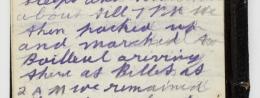 about till 7 P.M. we
then packed up
and marched to
Bailleul ariving
there at Billets at
2 A M we remained